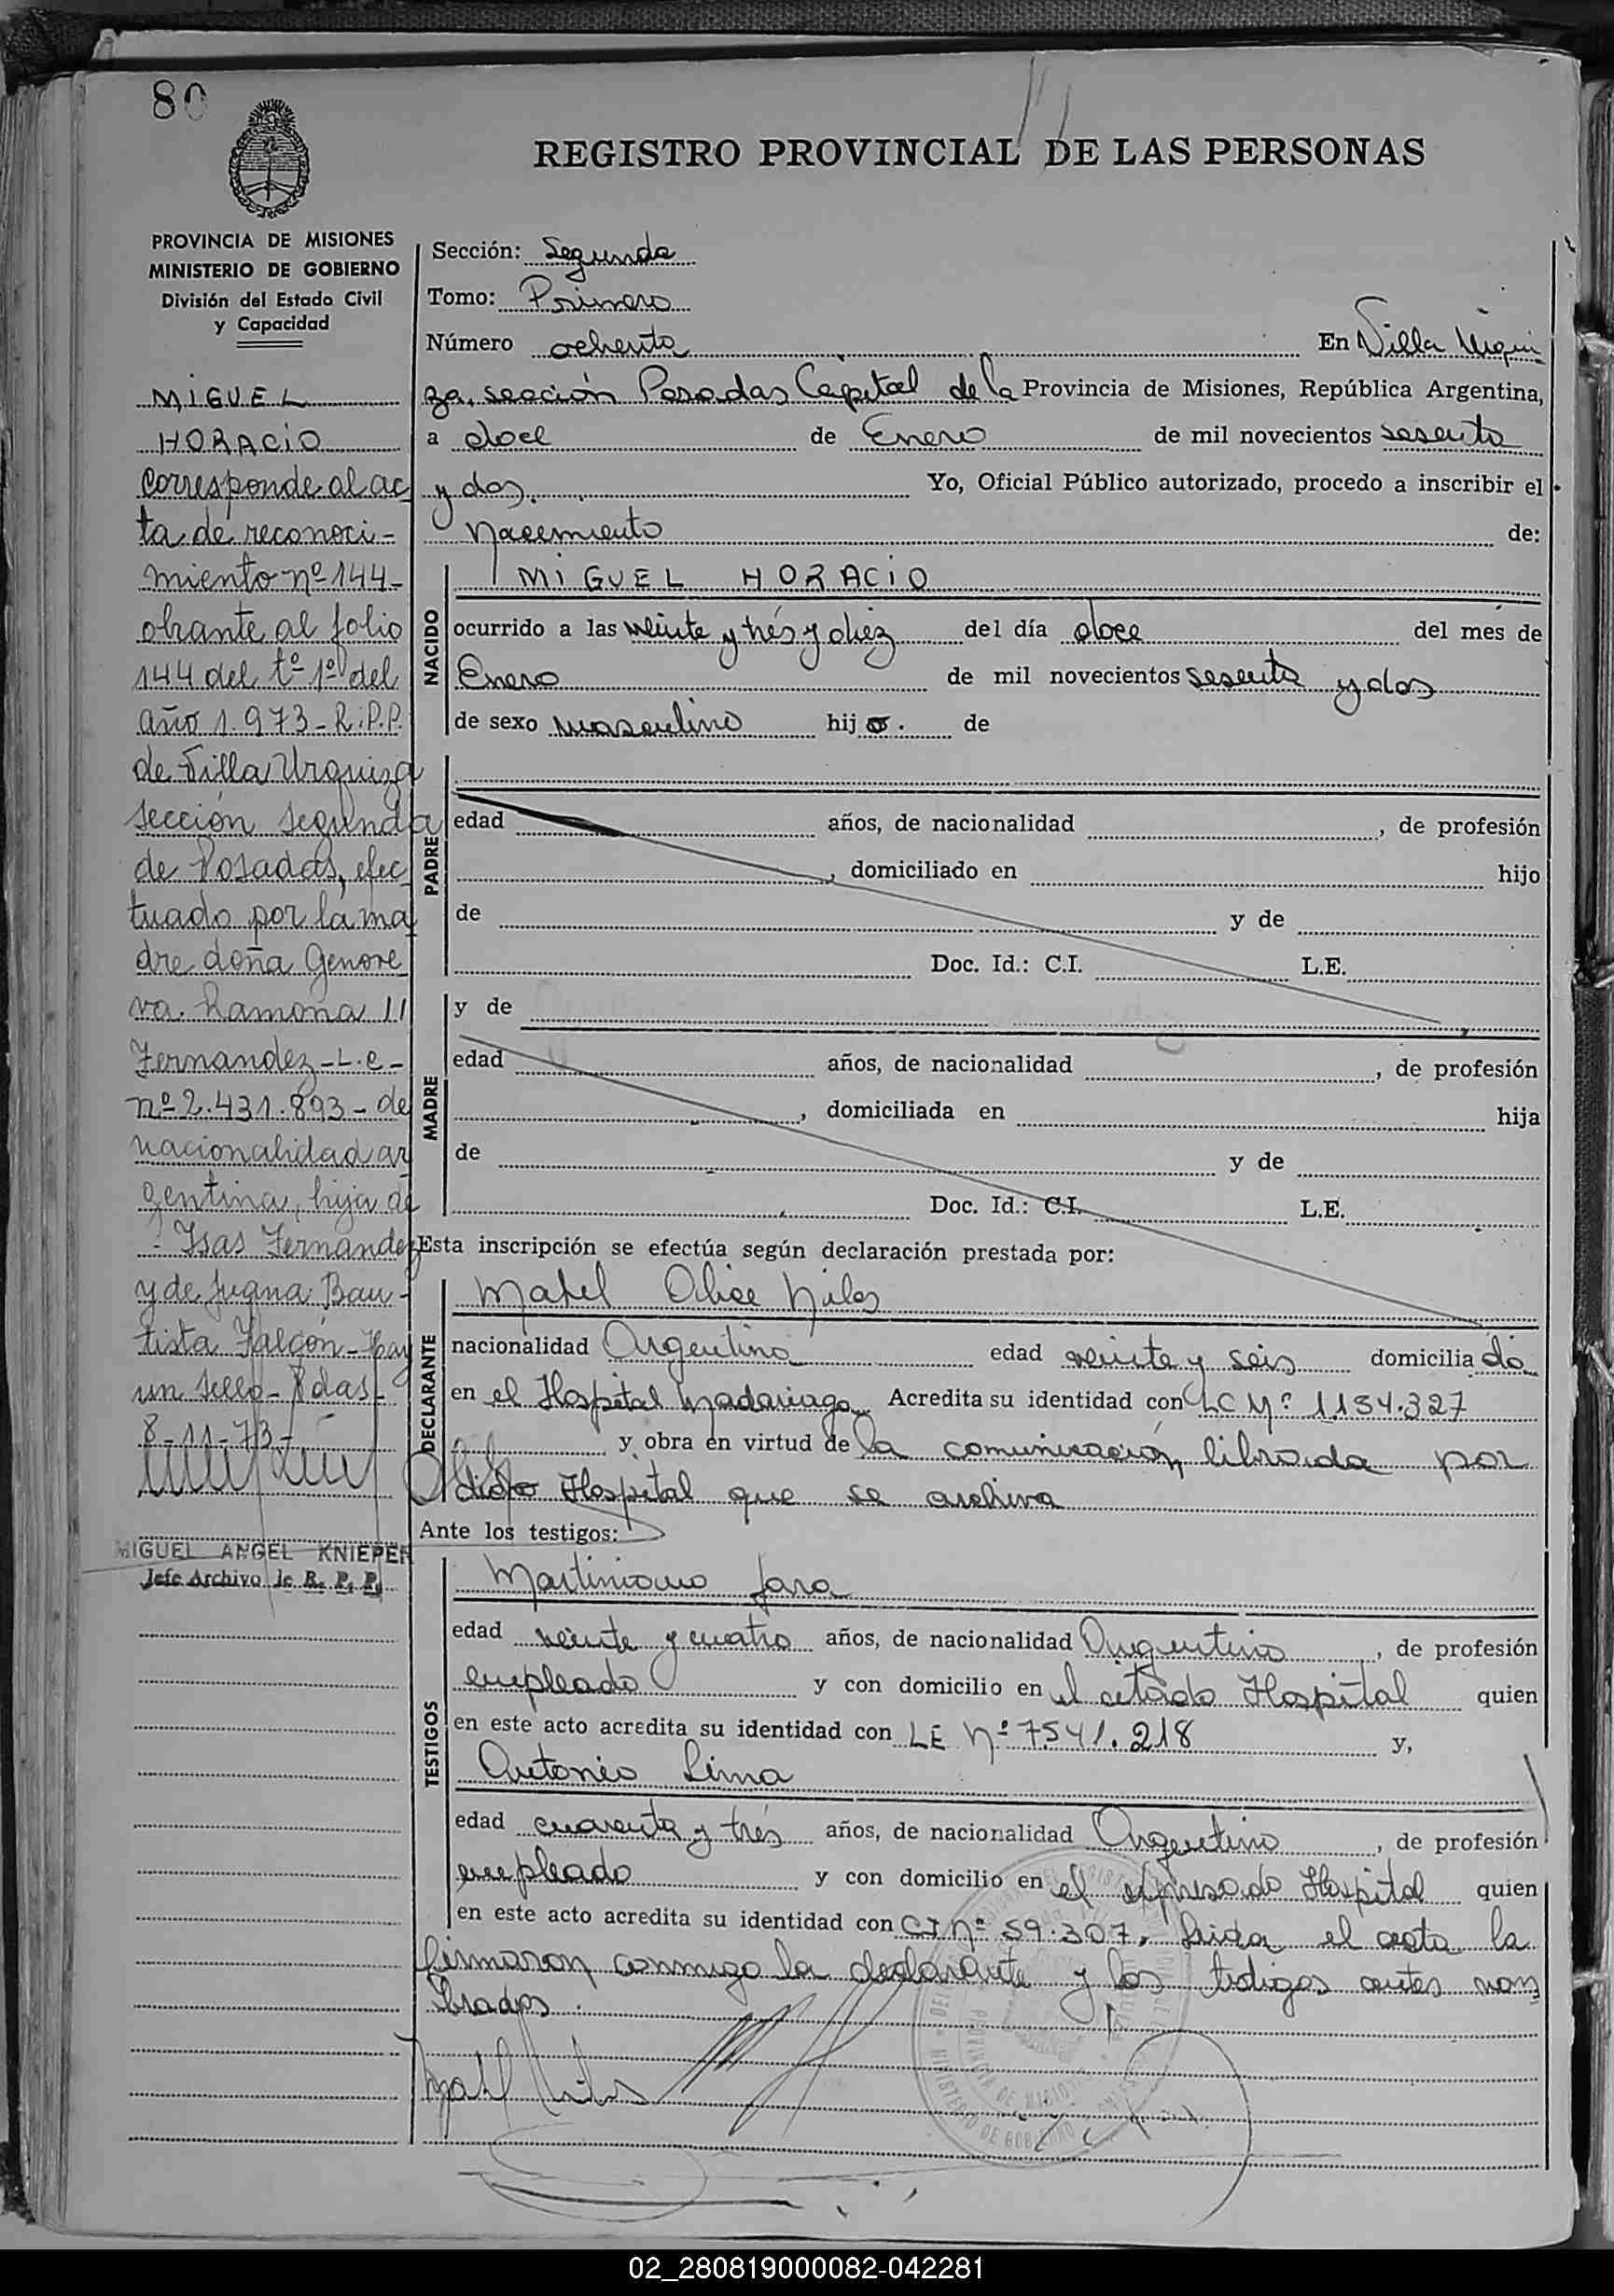 80
REGISTRO PROVINCIAL DE LAS PERSONAS
PROVINCIA DE MISIONES
MINISTERIO DE GOBIERNO
División del Estado Civil
y Capacidad
MIGUEL
HORACIO
Corresponde al ac
ta de reconoci-
miento nº 144-
obrante al folio
144 del tº 1º del
año 1.973 - R.P.P.
de Villa Urquiza
sección segunda
de Posadas, efec
tuado por la ma
dre doña Genove
va Ramona
Fernandez - L.C. -
nº 2.431.893 - de
nacionalidad ar
gentina, hija de
Isas Fernandez
y de Juana Bau-
tista Falcón - Hay
un sello - Pdas
8-11-73-
MIGUEL ANGEL KNIEPER
Jefe Archivo de R. P. P.
Sección: Segunda
Tomo: Primero
Número ochenta En Villa Urqui
za, sección Posadas Capital de la Provincia de Misiones, República Argentina,
a doce de Enero de mil novecientos sesenta
y dos. Yo, Oficial Público autorizado, procedo a inscribir el
Nacimiento de:
NACIDO
MIGUEL HORACIO
ocurrido a las veinte y trés y diez del día doce del mes de
Enero de mil novecientos sesenta y dos
de sexo masculino hijo. de
PADRE
edad años, de nacionalidad , de profesión
, domiciliado en hijo
de y de
Doc. Id.: C.I. L.E.
MADRE
y de
edad años, de nacionalidad , de profesión
, domiciliada en hija
de y de
Doc. Id.: C.I. L.E.
Esta inscripción se efectúa según declaración prestada por:
DECLARANTE
Mabel Alice
nacionalidad Argentina edad veinte y seis domiciliado
en el Hospital Madariaga Acredita su identidad con LC Nº 1.154.327
y obra en virtud de la comunicación librada por
dicho Hospital que se archiva
Ante los testigos:
TESTIGOS
Martiniano Jara
edad veinte y cuatro años, de nacionalidad Argentino, de profesión
empleado y con domicilio en el citado Hospital quien
en este acto acredita su identidad con LE Nº 7.541.218 y,
Antonio Lima
edad cuarenta y trés años, de nacionalidad Argentino, de profesión
empleado y con domicilio en el expresado Hospital quien
en este acto acredita su identidad con CI Nº 59.307. Leida el acta la
firmaron conmigo la declarante y los testigos antes nom
brados.
02_280819000082-042281